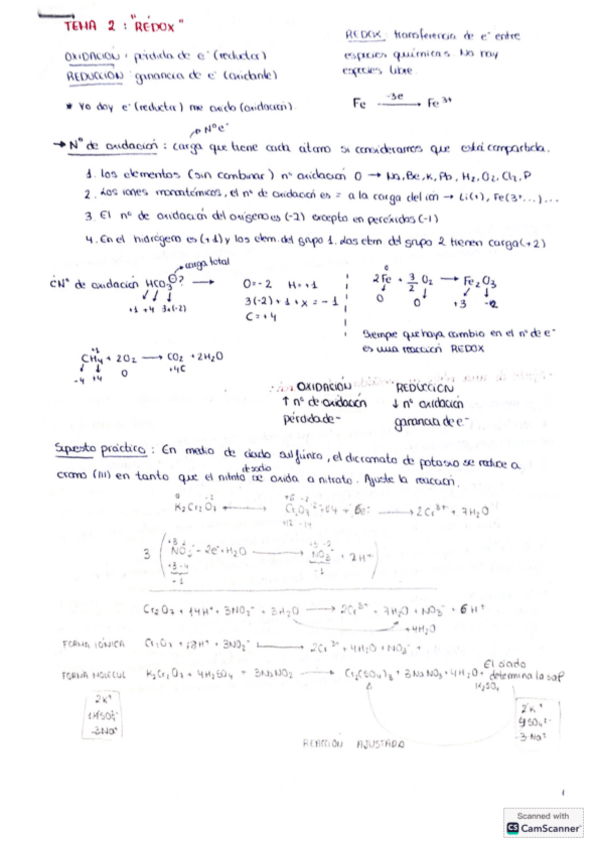 TEMA 2 : "REDOX"
REDOX: transferencia de e⁻ entre
especies químicas. No hay
especies libre.
OXIDACIÓN : pérdida de e⁻ (reductor)
REDUCCIÓN : ganancia de e⁻ (oxidante)
* Yo doy e⁻ (reductor) me oxido (oxidación)
Fe -3e⁻ → Fe³⁺
Nº e⁻
→ Nº de oxidación : carga que tiene cada átomo si consideramos que está compartida.
1. Los elementos (sin combinar) nº oxidación 0 → Na, Be, K, Pb, H₂, O₂, Cl₂, P
2. Los iones monoatómicos, el nº de oxidación es = a la carga del ion → Li(+), Fe(3+...)...
3 El nº de oxidación del oxígeno es (-2) excepto en peróxidos (-1)
4. En el hidrógeno es (+1) y los elem. del grupo 1. Los elem del grupo 2 tienen carga (+2)
carga total
¿Nº de oxidación HCO₃⁻? →
+1 +4 3·(-2)
O = -2 H = +1
3(-2) + 1 + x = -1
C = +4
2Fe + 3/2 O₂ → Fe₂O₃
0 0 +3 -2
Siempre que haya cambio en el nº de e⁻
es una reacción REDOX
CH₄ + 2O₂ → CO₂ + 2H₂O
-4 +4 0 +4C
OXIDACIÓN REDUCCIÓN
↑ nº de oxidación ↓ nº oxidación
pérdida e⁻ ganancia de e⁻
Supuesto práctico : En medio de ácido sulfúrico, el dicromato de potasio se reduce a
cromo (III) en tanto que el nitrito de sodio se oxida a nitrato. Ajuste la reacción.
K₂Cr₂O₇
→ 2Cr³⁺ + 7H₂O
3 ( NO₂⁻ - 2e⁻ + H₂O → NO₃⁻ + 2H⁺ )
Cr₂O₇ + 14H⁺ + 3NO₂⁻ + 3H₂O → 2Cr³⁺ + 7H₂O + NO₃⁻ + 6H⁺
+4H₂O
FORMA IÓNICA Cr₂O₇ + 8H⁺ + 3NO₂⁻ → 2Cr³⁺ + 4H₂O + NO₃⁻
FORMA MOLECUL K₂Cr₂O₇ + 4H₂SO₄ + 3NaNO₂ → Cr₂(SO₄)₃ + 3NaNO₃ + 4H₂O +
El ácido
determina la sal
K₂SO₄
2K⁺
3Na⁺
2K⁺
4SO₄²⁻
3Na⁺
REACCIÓN AJUSTADO
1
Scanned with
CS CamScanner